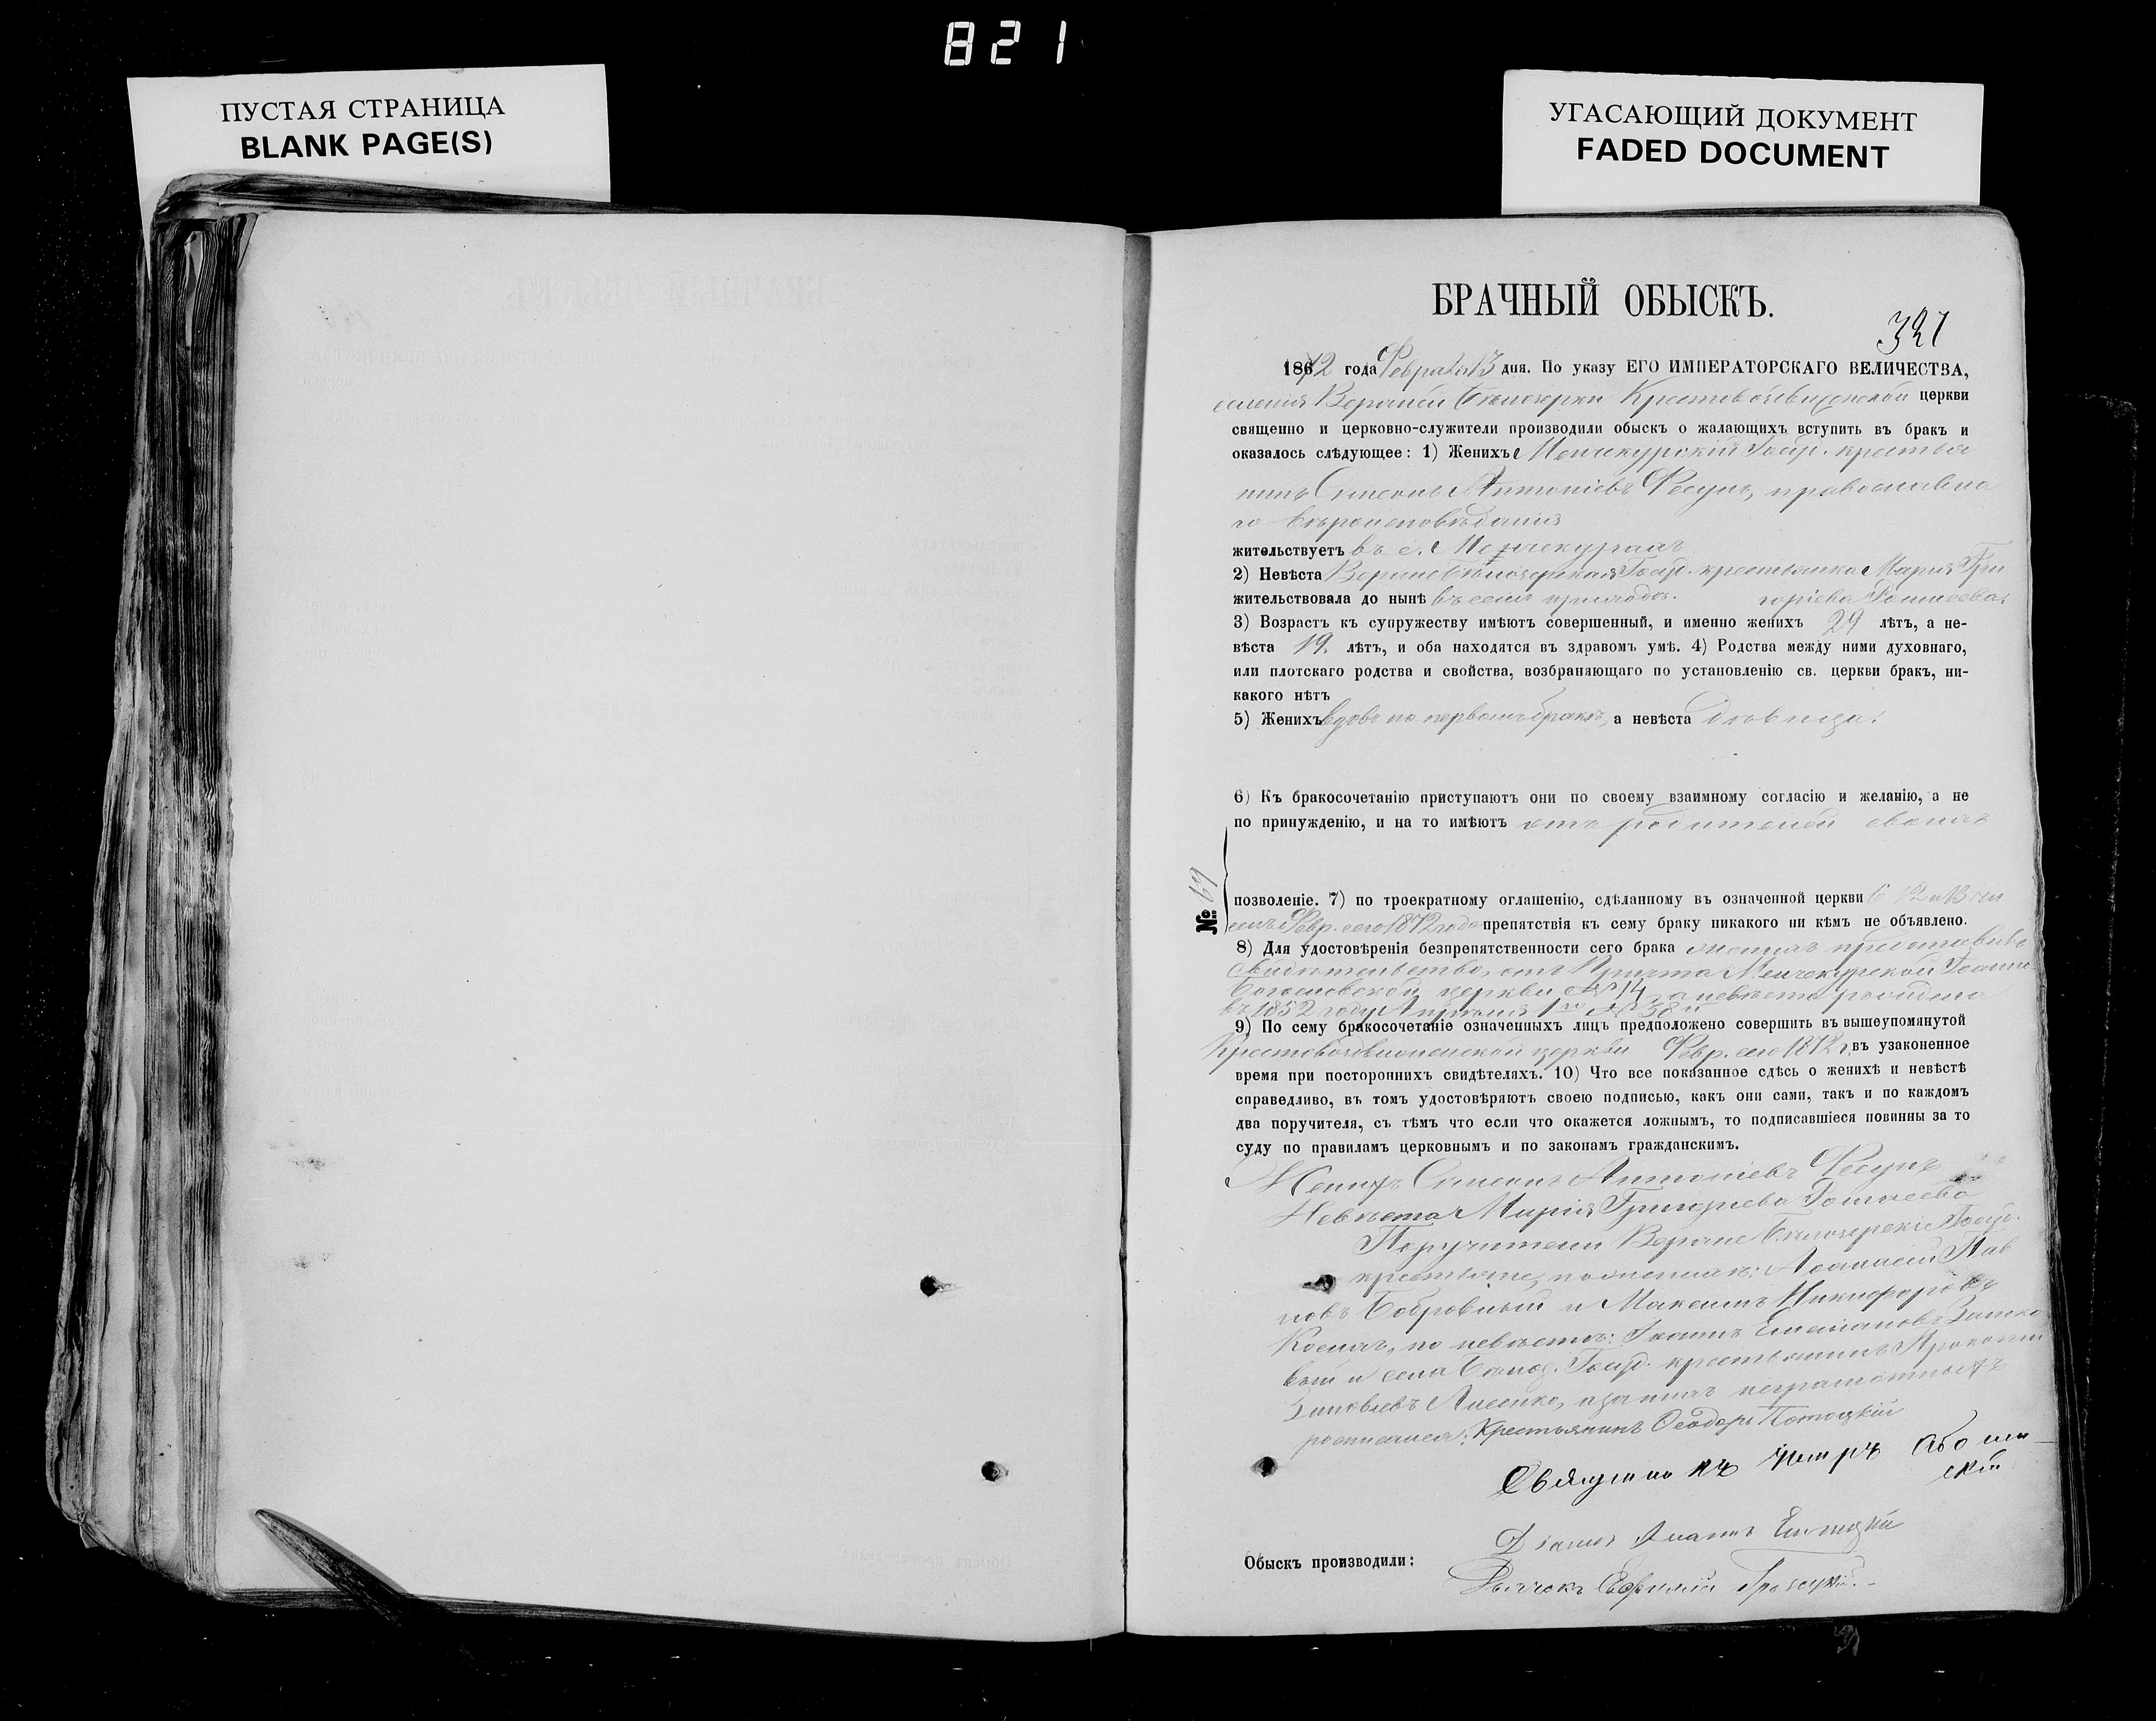 821
ПУСТАЯ СТРАНИЦА
BLANK PAGE(S)
УГАСАЮЩИЙ ДОКУМЕНТ
FADED DOCUMENT
БРАЧНЫЙ ОБЫСКЪ.
321
1872 года Февраля 13 дня. По указу ЕГО ИМПЕРАТОРСКАГО ВЕЛИЧЕСТВА,
селенія Верхней Бѣлозерки Крестовоздвиженской церкви
священно и церковно-служители производили обыскъ о жалающихъ вступить въ бракъ и
оказалось слѣдующее: 1) Женихъ Менчекурскій Госуд. крестья
нинъ Симеонъ Антоніевъ Фесунъ, православна
го вѣроисповѣданія
жительствуетъ въ с. Менчекурахъ
2) Невѣста Верхнебѣлозерская Госуд. крестьянка Марія Гри
жительствовала до нынѣ въ семъ приходѣ. горіева
3) Возрастъ къ супружеству имѣютъ совершенный, и именно женихъ 29 лѣтъ, а не-
вѣста 19. лѣтъ, и оба находятся въ здравомъ умѣ. 4) Родства между ними духовнаго,
или плотскаго родства и свойства, возбраняющаго по установленію св. церкви бракъ, ни-
какого нѣтъ
5) Женихъ вдовъ по первомъ бракѣ, а невѣста дѣвица.
6) Къ бракосочетанію приступаютъ они по своему взаимному согласію и желанію, а не
по принужденію, и на то имѣютъ отъ родителей своихъ
№ 69
позволеніе. 7) по троекратному оглашенію, сдѣланному въ означенной церкви 6 12 и 13 чи
селъ Февр. сего 1872 года препятствія къ сему браку никакого ни кѣмъ не объявлено.
8) Для удостовѣренія безпрепятственности сего брака женихъ представилъ
свидѣтельство, отъ Причта Менчекурской Іоанно-
Богословской церкви № 14, а невѣста рождена
въ 1852 году Апрѣля 1го № 38й
9) По сему бракосочетаніе означенныхъ лицъ предположено совершить въ вышеупомянутой
Крестовоздвиженской церкви Февр. сего 1872 г. въ узаконенное
время при постороннихъ свидѣтеляхъ. 10) Что все показанное сдѣсь о женихѣ и невѣстѣ
справедливо, въ томъ удостовѣряютъ своею подписью, какъ они сами, такъ и по каждомъ
два поручителя, съ тѣмъ что если что окажется ложнымъ, то подписавшіеся повинны за то
суду по правиламъ церковнымъ и по законамъ гражданскимъ.
Женихъ Симеонъ Антоніевъ Фесунъ
Невѣста Марія Григоріева
Поручители Верхне Бѣлозерскіе Госуд.
крестьяне, по женихѣ: Аѳанасій Пав
ловъ Бобровный и Максимъ Никифоровъ
по невѣстѣ: Іоаннъ Емеліановъ
и села Бѣлоз. Госуд. крестьянинъ Прокопій
Зиновіевъ Лисенко, а за нихъ неграмотныхъ
росписался: Крестьянинъ Ѳеодоръ Потоцкій
Священникъ Петръ
скій
Діаконъ Іоаннъ
Обыскъ производили:
Дьячокъ Евфимій